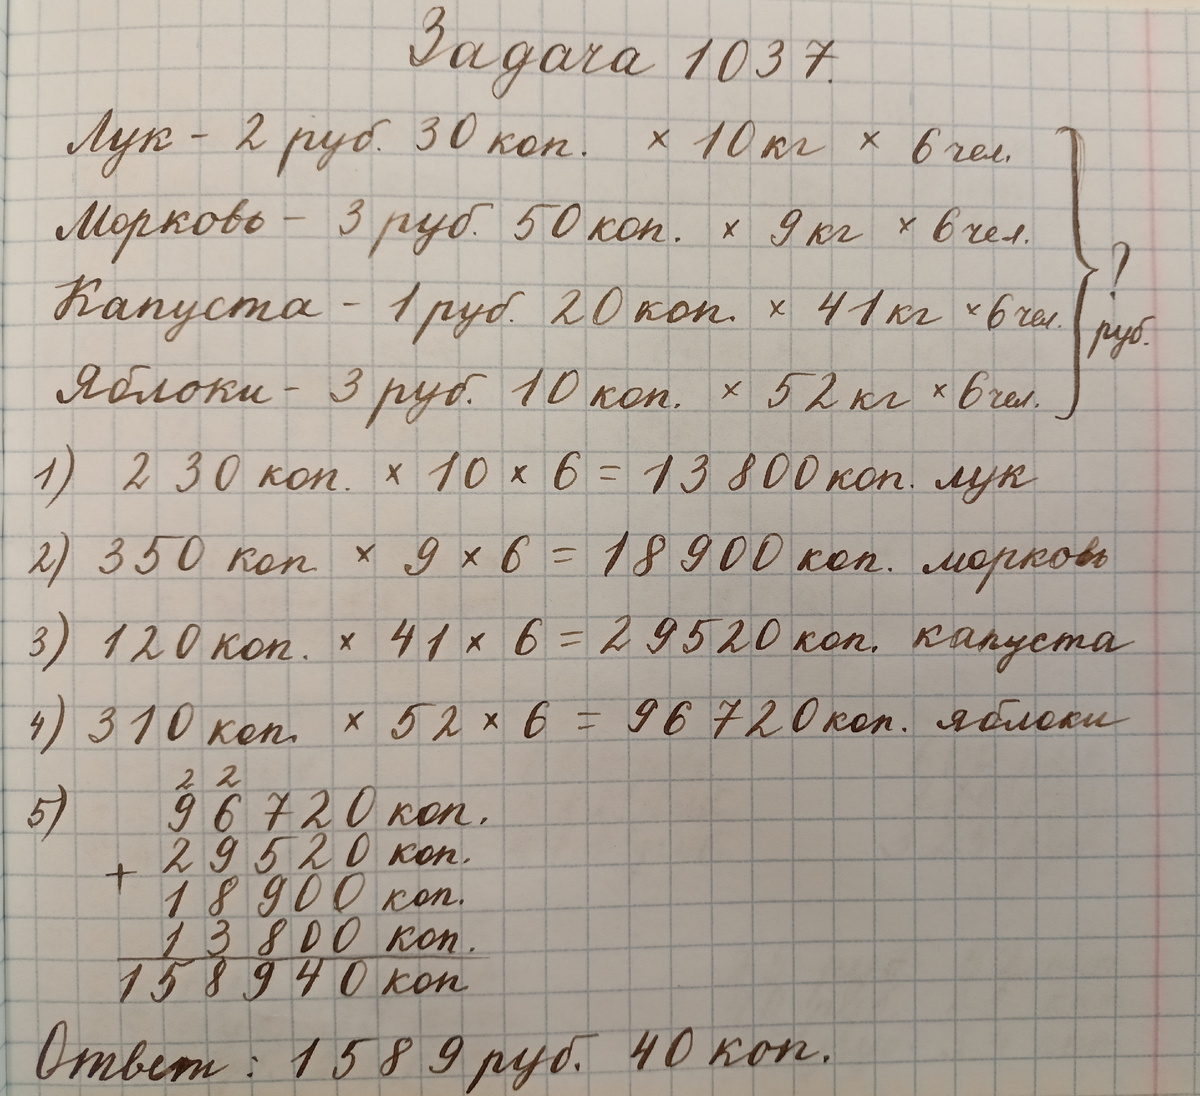 Задача 1037.
Лук - 2 руб. 30 коп. × 10 кг × 6 чел.
Морковь - 3 руб. 50 коп. × 9 кг × 6 чел.
Капуста - 1 руб. 20 коп. × 41 кг × 6 чел.
Яблоки - 3 руб. 10 коп. × 52 кг × 6 чел.
? руб.
1) 230 коп. × 10 × 6 = 13 800 коп. лук
2) 350 коп × 9 × 6 = 18 900 коп. морковь
3) 120 коп. × 41 × 6 = 29520 коп. капуста
4) 310 коп. × 52 × 6 = 96 720 коп. яблоки
2 2
5) 96720 коп.
+ 29520 коп.
18900 коп.
13800 коп.
158940 коп
Ответ: 1589 руб. 40 коп.